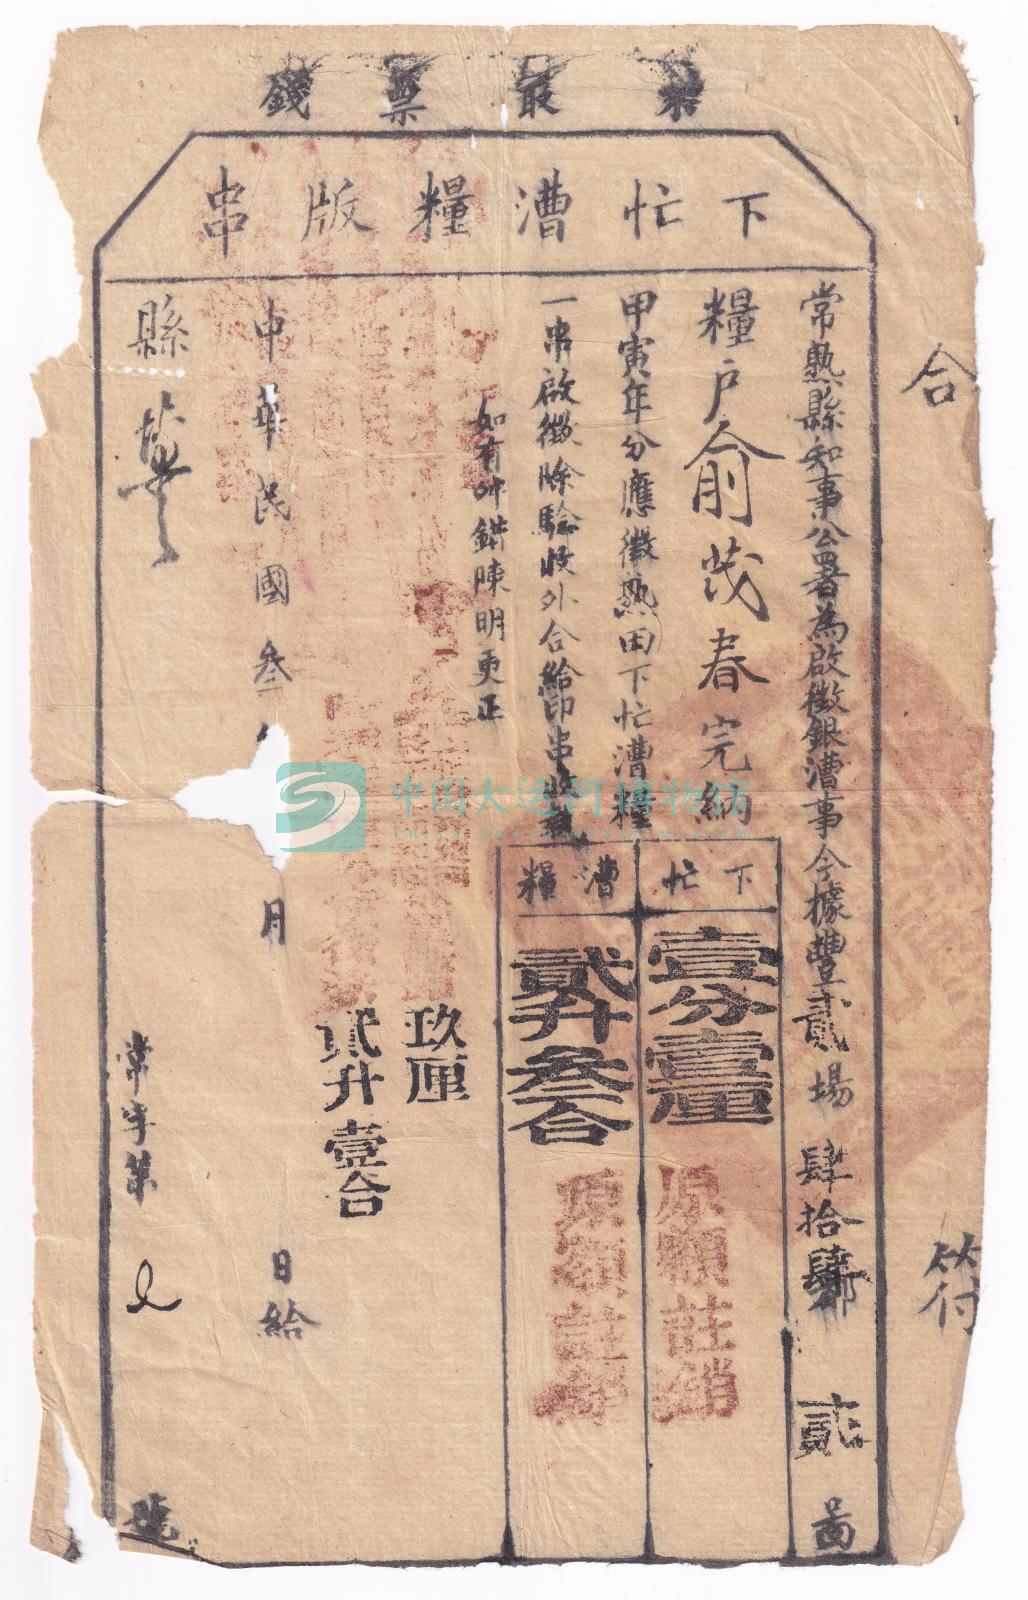 票錢
下忙漕糧版串
合
符
常熟縣知事公署為啟徵銀漕事今據豐貳場 肆拾肆都 貳 啚
糧戶俞茂春完納
甲寅年分應徵熟田下忙漕糧
一串啟徵除驗收外合給印串
如有舛錯陳明更正
下忙
壹分壹厘
原額註銷
漕糧
貳升叁合
原額註銷
玖厘
貳升壹合
中華民國叁 月 日給
縣
常字第 號
中国大运河博物馆